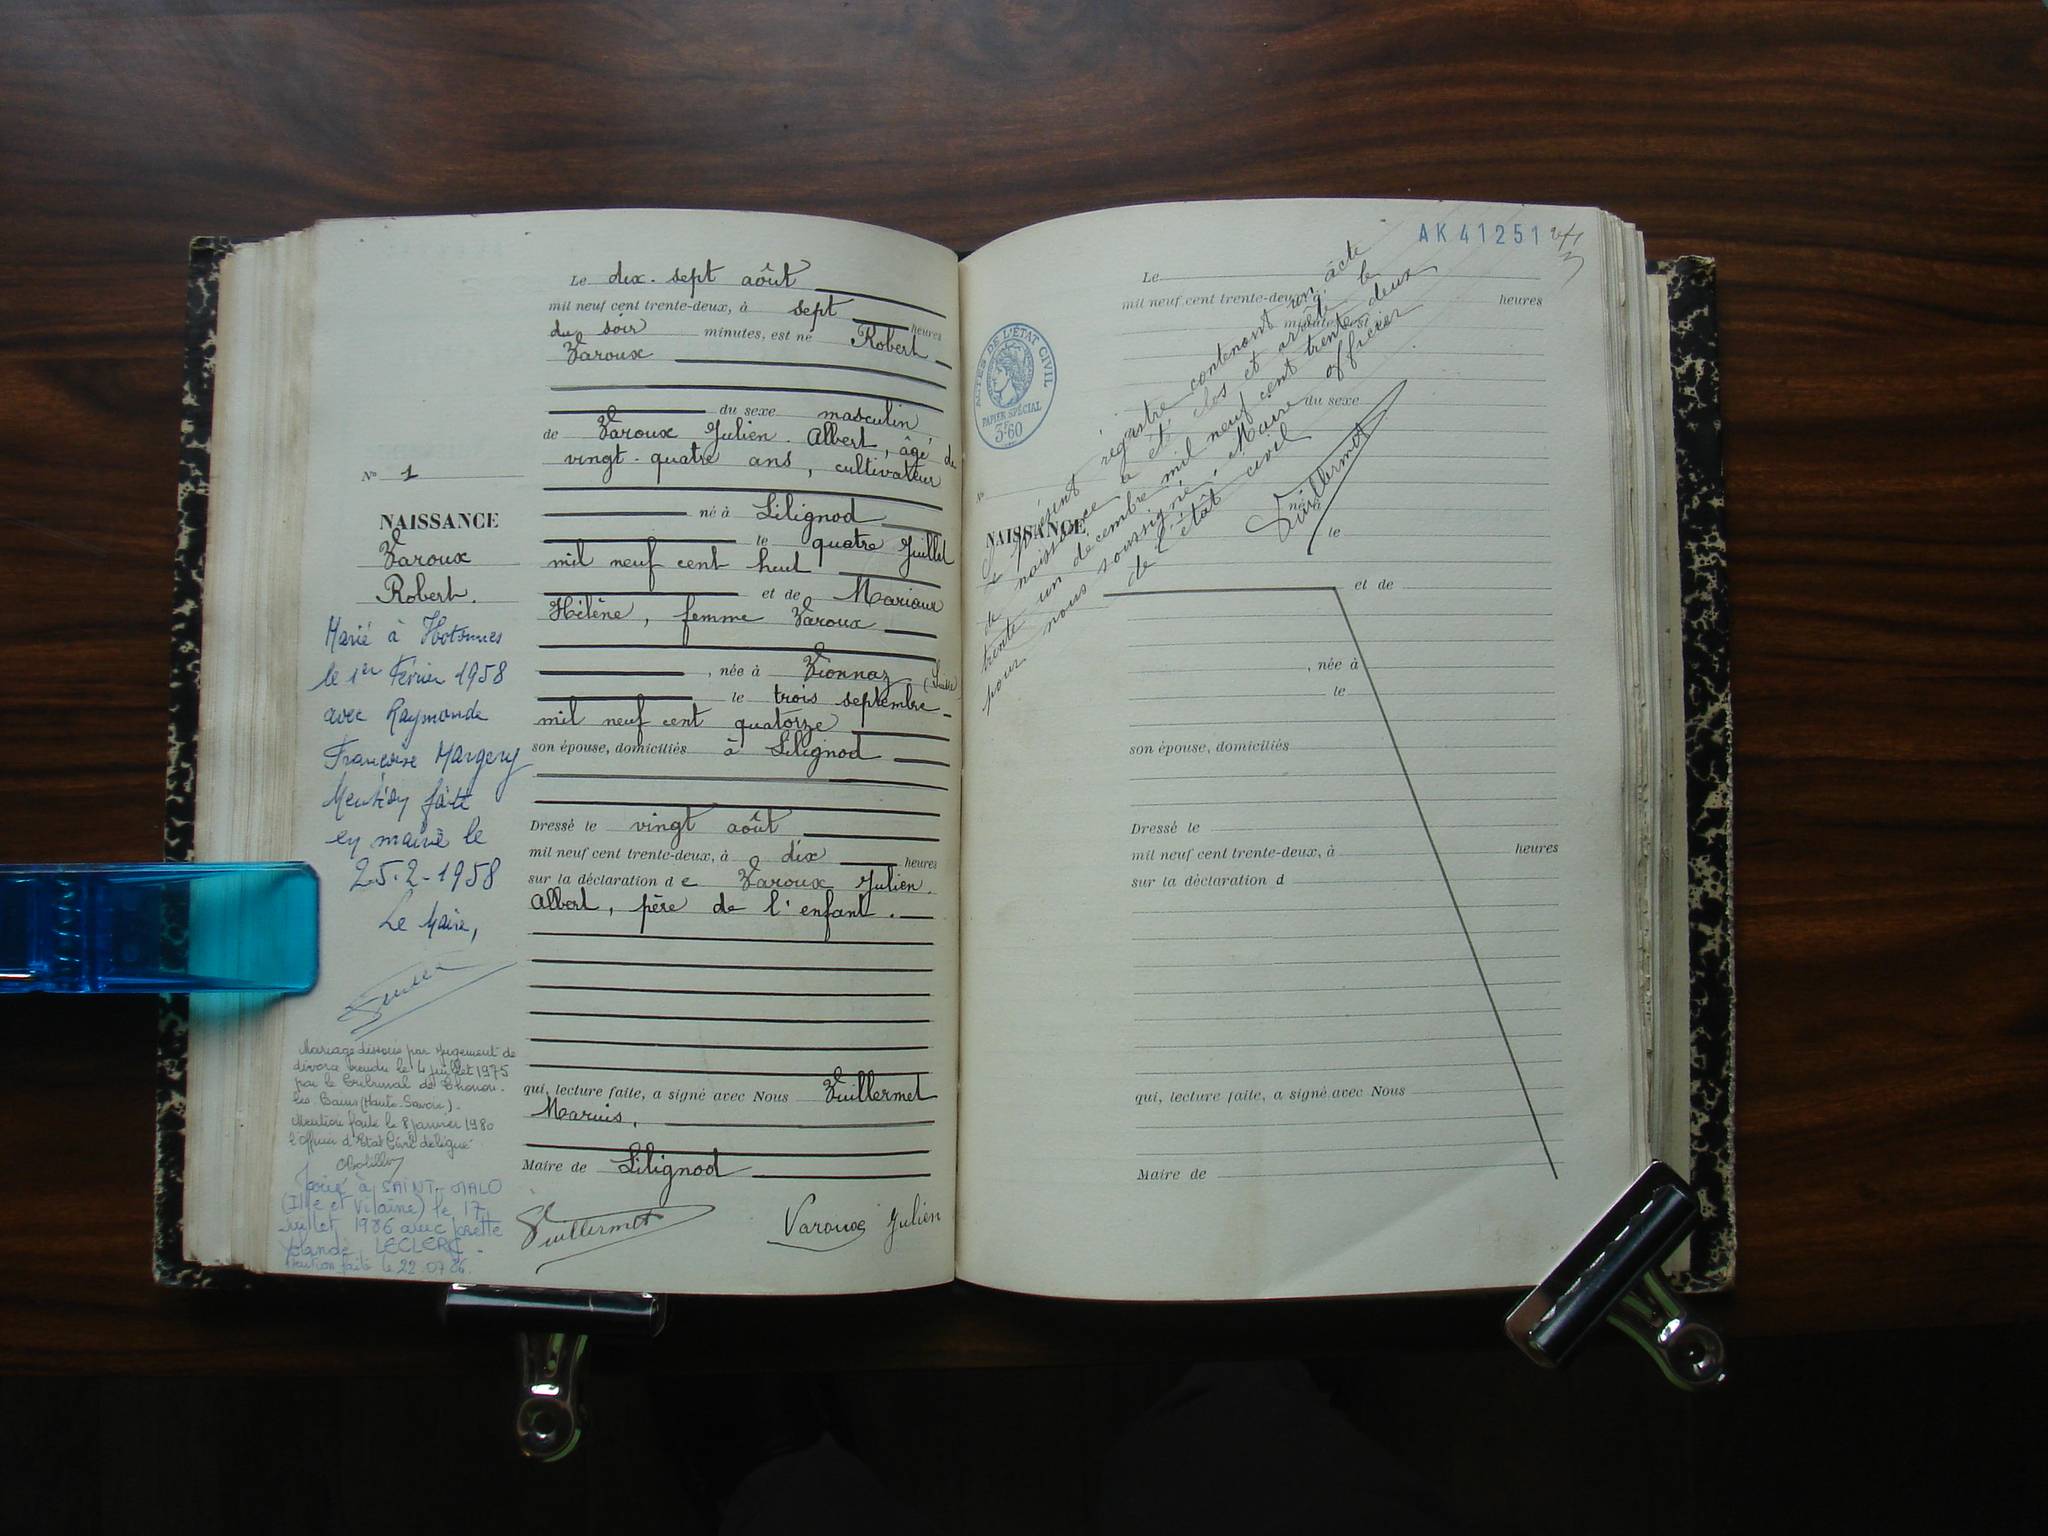 Le dix-sept août
mil neuf cent trente-deux, à sept heures
du soir minutes, est né Robert
Varoux
du sexe masculin
de Varoux Julien Albert, âgé de
vingt-quatre ans, cultivateur
né à Lilignod
le quatre Juillet
mil neuf cent huit
et de Mariaux
Hélène, femme Varoux
, née à Vionnaz (Suisse)
le trois septembre
mil neuf cent quatorze
son épouse, domiciliés à Lilignod
Dressé le vingt août
mil neuf cent trente-deux, à dix heures
sur la déclaration de Varoux Julien
Albert, père de l'enfant.
qui, lecture faite, a signé avec Nous Vuillermet
Marius,
Maire de Lilignod
Vuillermet Varoux Julien
N° 1
NAISSANCE
Varoux
Robert.
Marié à
le 1er Février 1958
avec Raymonde
Françoise Margery
Mention faite
en mairie le
25-2-1958
Le Maire,
Mariage dissous par Jugement de
divorce rendu le 4 juillet 1975
par le Tribunal de Thonon-
les-Bains (Haute-Savoie).
Mention faite le 8 janvier 1980
l'Officier d'Etat Civil délégué
à SAINT-MALO
(Ille et Vilaine) le 17
juillet 1986 avec Josette
Yolande LECLERC.
Mention faite le 22.07.86.
AK 41251
ACTES DE L'ÉTAT CIVIL
PAPIER SPÉCIAL
3F60
Le
mil neuf cent trente-deux, à heures
minutes, est
du sexe
N°
NAISSANCE
né à
le
et de
, née à
le
son épouse, domiciliés
Dressé le
mil neuf cent trente-deux, à heures
sur la déclaration d
qui, lecture faite, a signé avec Nous
Maire de
Le présent régistre contenant un acte
de naissance a été clos et arrêté le
trente un décembre mil neuf cent trente deux
par nous soussigné, Maire officier
de l'état civil
Vuillermet